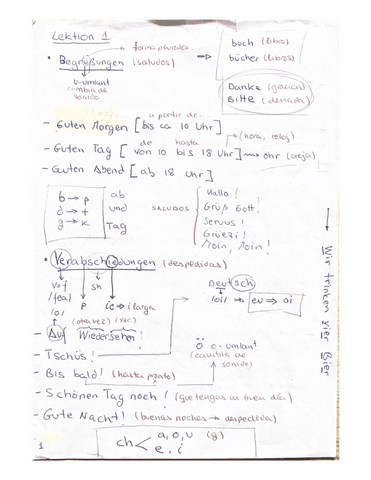 Lektion 1
forma plural
buch (libro)
bücher (libros)
• Begrüßungen (saludos)
u-umlaut
cambia de
sonido
Danke (gracias)
Bitte (de nada)
a partir de...
- Guten Morgen [bis ca 10 Uhr]
de hasta
(hora, reloj)
- Guten Tag [von 10 bis 18 Uhr] ohr (oreja)
- Guten Abend [ab 18 uhr]
b → p ab
d → t und
g → k Tag
SALUDOS
Hallo!
Grüß Gott!
Servus!
Grüezi!
Moin, Moin!
• Verabschiedungen (despedidas)
v=f
/fea/
/o/
p
sh
ie → i larga
Deutsch
/oi/ → eu → oi
(otra vez) (ver)
- Auf Wiedersehen!
- Tschüs!
ö o-umlaut
(cambia de
sonido)
- Bis bald! (hasta pronto)
- Schönen Tag noch! (que tengas un buen día)
- Gute Nacht! (buenas noches → despedida)
ch < a, o, u (g)
e, i
1
→ Wir trinken vier Bier